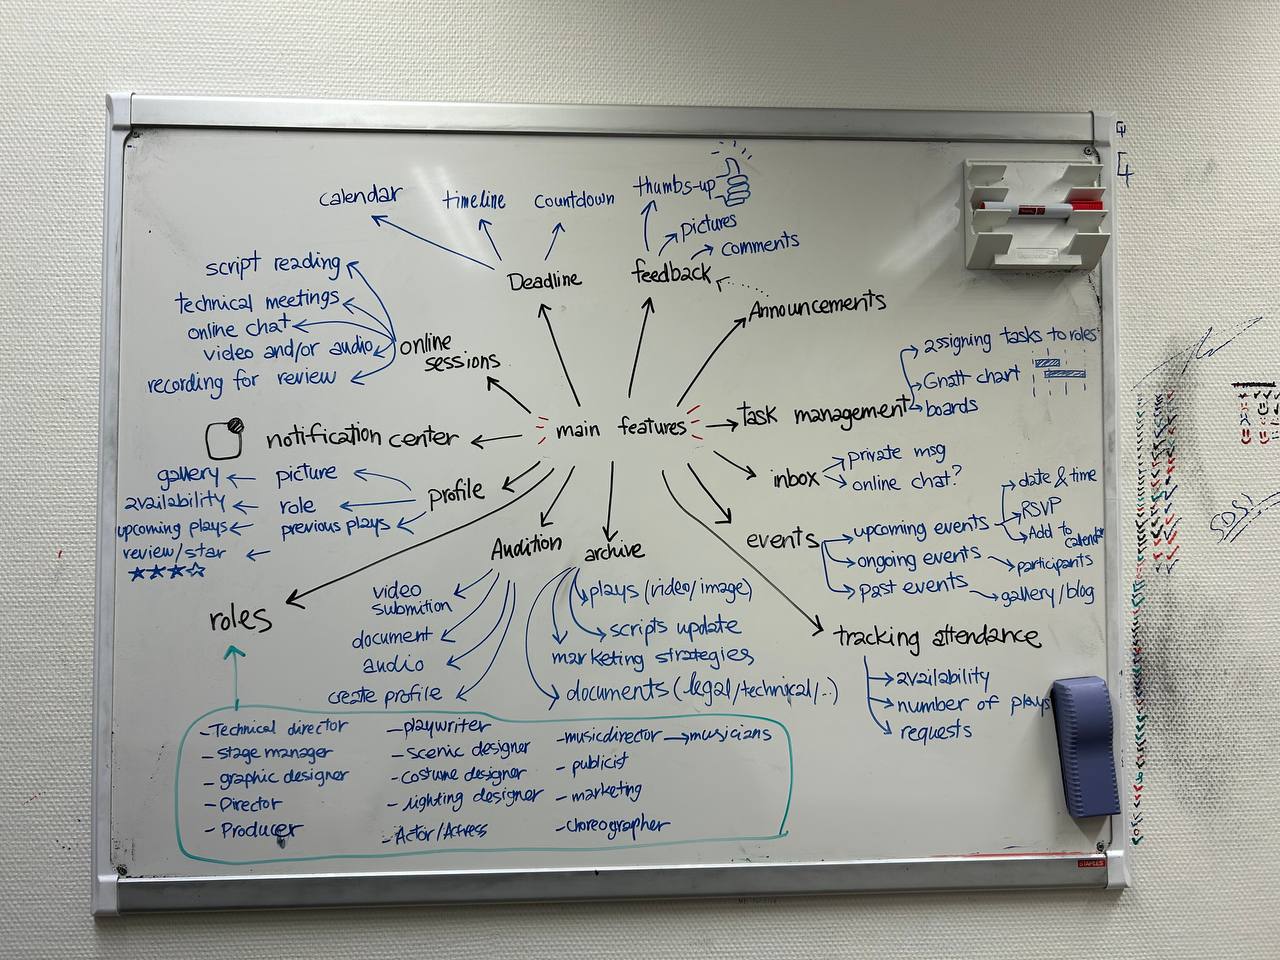 calendar
timeline
countdown
thumbs-up
pictures
comments
Deadline
feedback
Announcements
script reading
technical meetings
online chat
video and/or audio
recording for review
online
sessions
assigning tasks to roles
Gnatt chart
boards
task management
main features
notification center
inbox
private msg
online chat?
gallery
picture
availability
role
upcoming plays
previous plays
review/star
profile
events
upcoming events
date & time
RSVP
Add to
ongoing events
participants
past events
gallery/blog
Audition
archive
video
submition
document
audio
create profile
plays (video/image)
scripts update
marketing strategies
documents (legal/technical/..)
roles
tracking attendance
availability
number of plays
requests
- Technical director
- stage manager
- graphic designer
- Director
- Producer
- playwriter
- scenic designer
- costume designer
- lighting designer
- Actor/Actress
- musicdirector → musicians
- publicist
- marketing
- choreographer
STAPLES